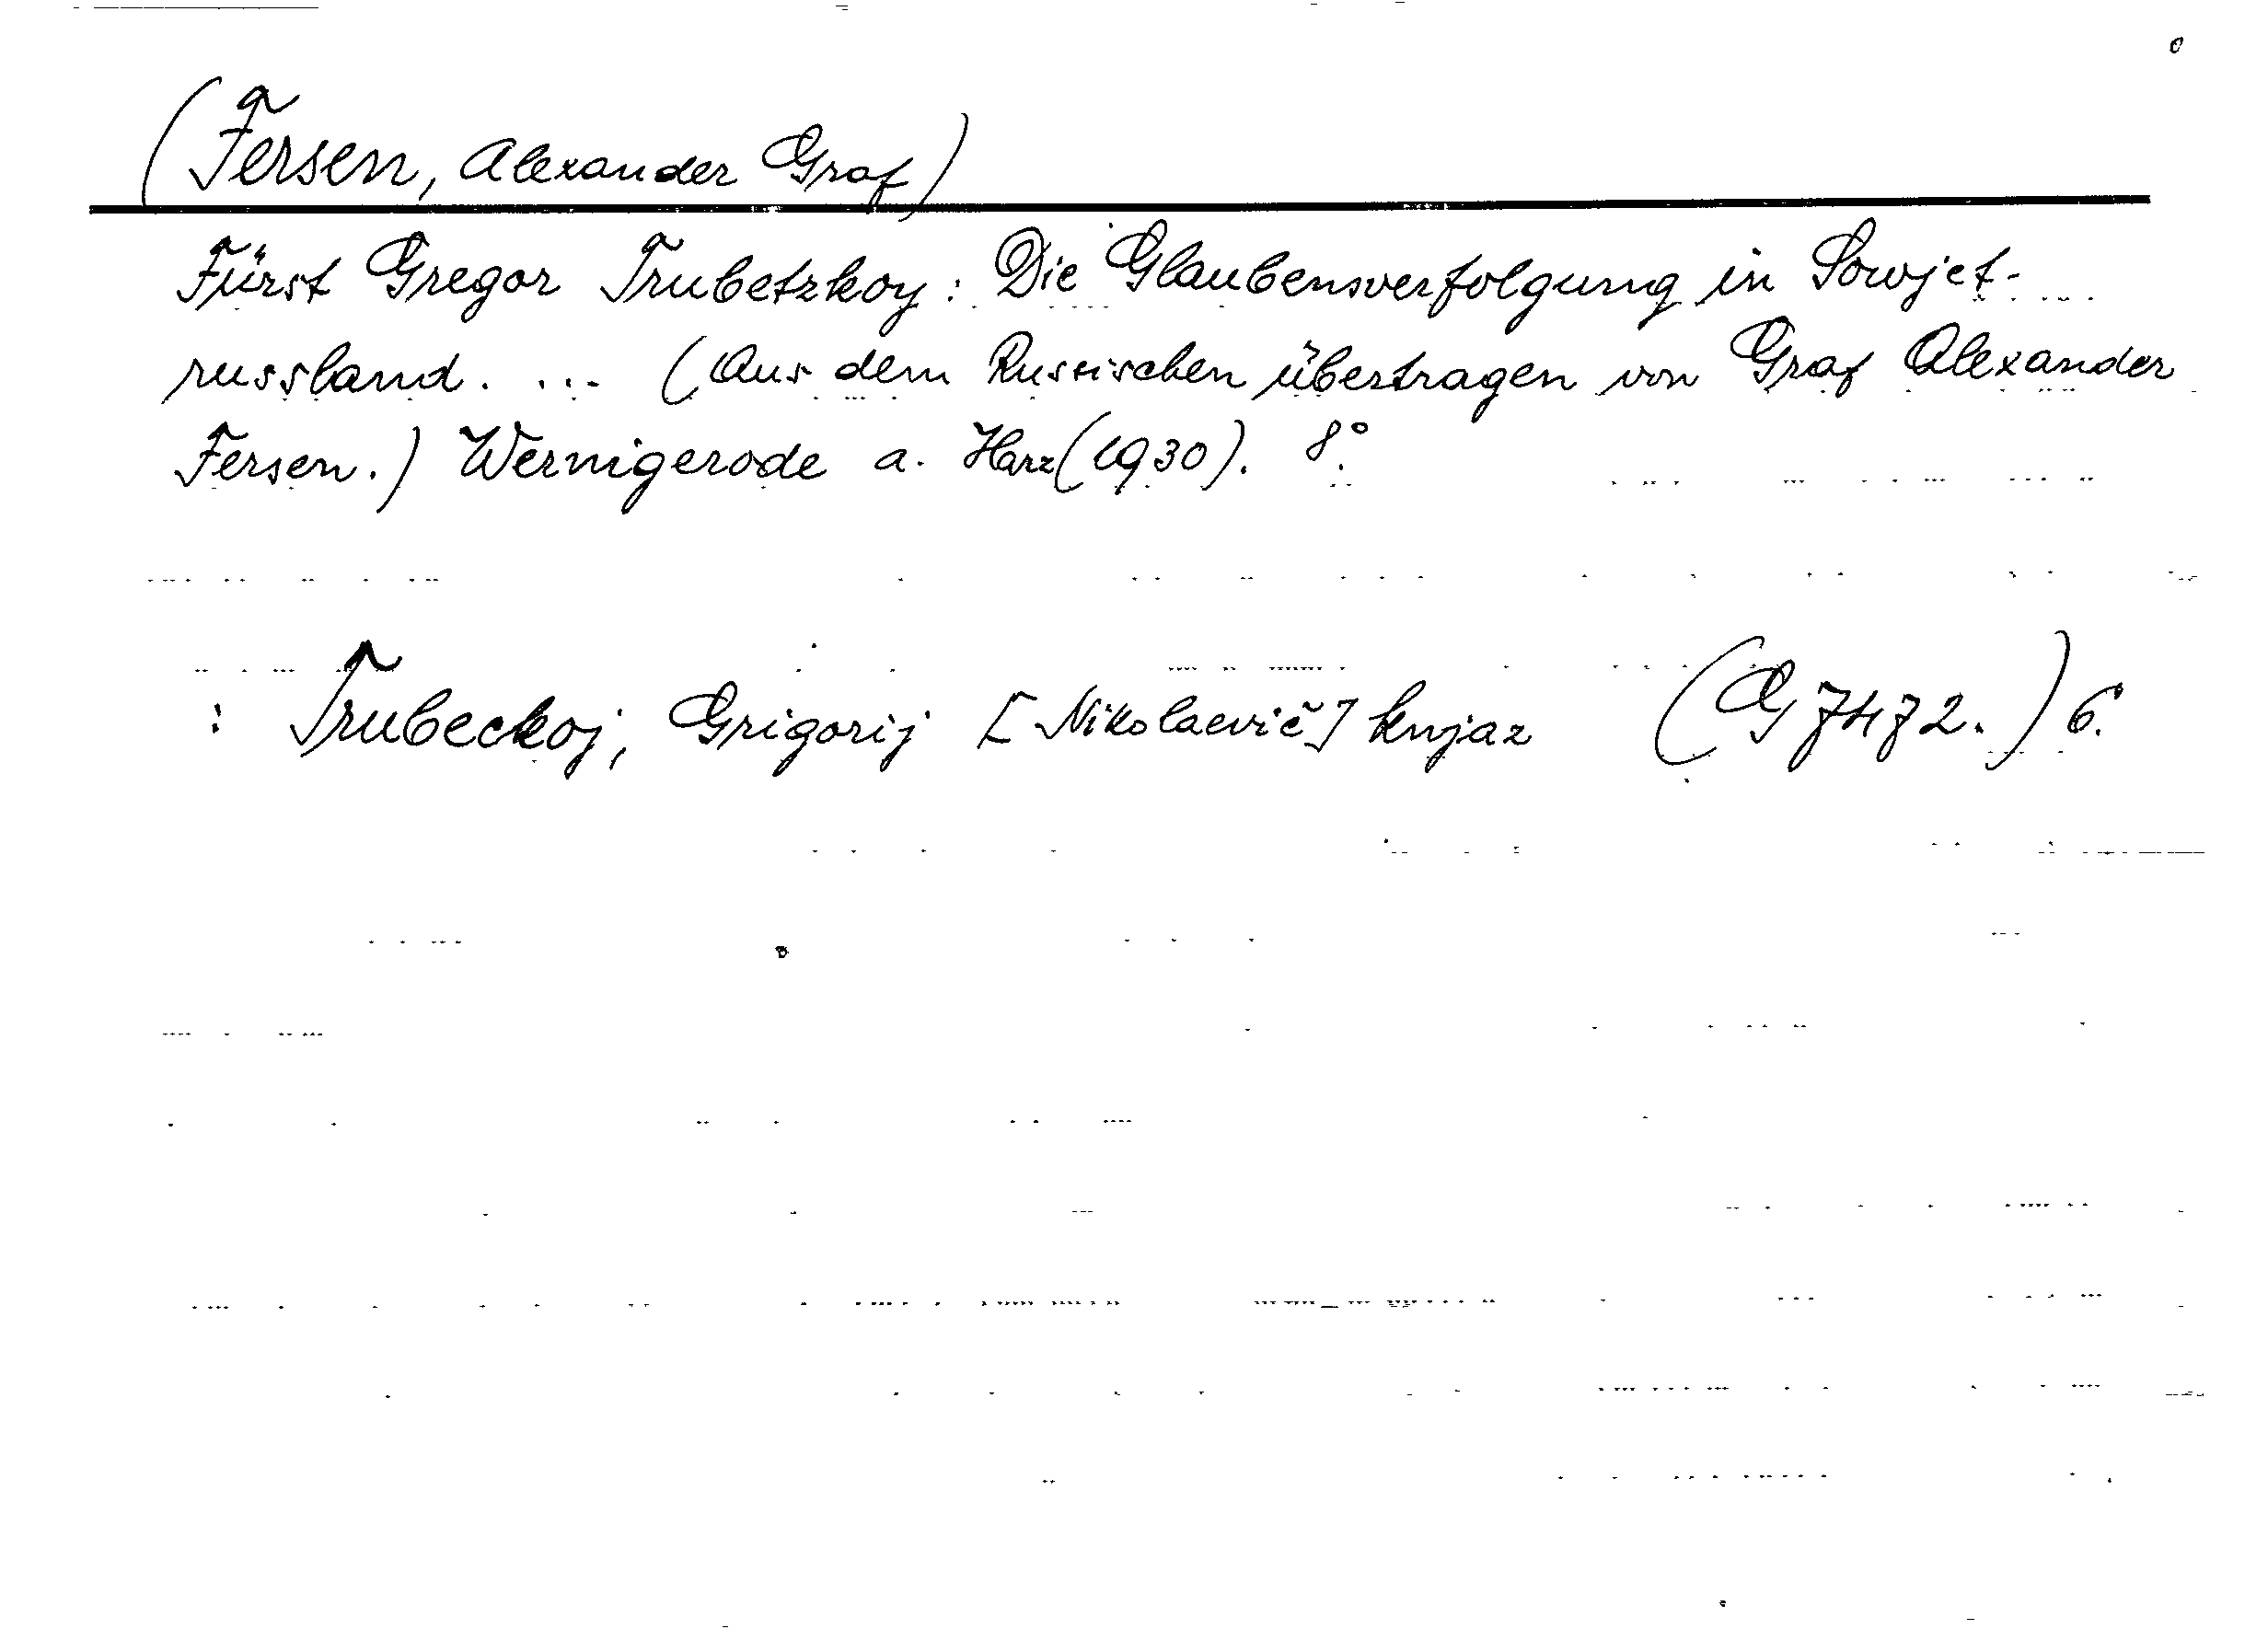 (Fersen, Alexander Graf)
Fürst Gregor Trubetzkoy: Die Glaubensverfolgung in Sowjet-
russland. ... (Aus dem Russischen übertragen von Graf Alexander
Fersen.) Wernigerode a. Harz (1930). 8°.
: Trubeckoj, Grigorij [Nikolaevič] knjaz (G 7472.) 6.